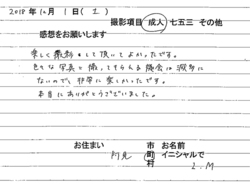 2018年10月1日(1)
撮影項目 成人 七五三 その他
感想をお願いします
楽しく撮影して頂いてよかったです。
色々な写真を撮ってもらえる機会は滅多に
ないので、非常に楽しかったです。
本日はありがとうございました。
お住まい 市 お名前
阿見 町 イニシャルで
村 I.M